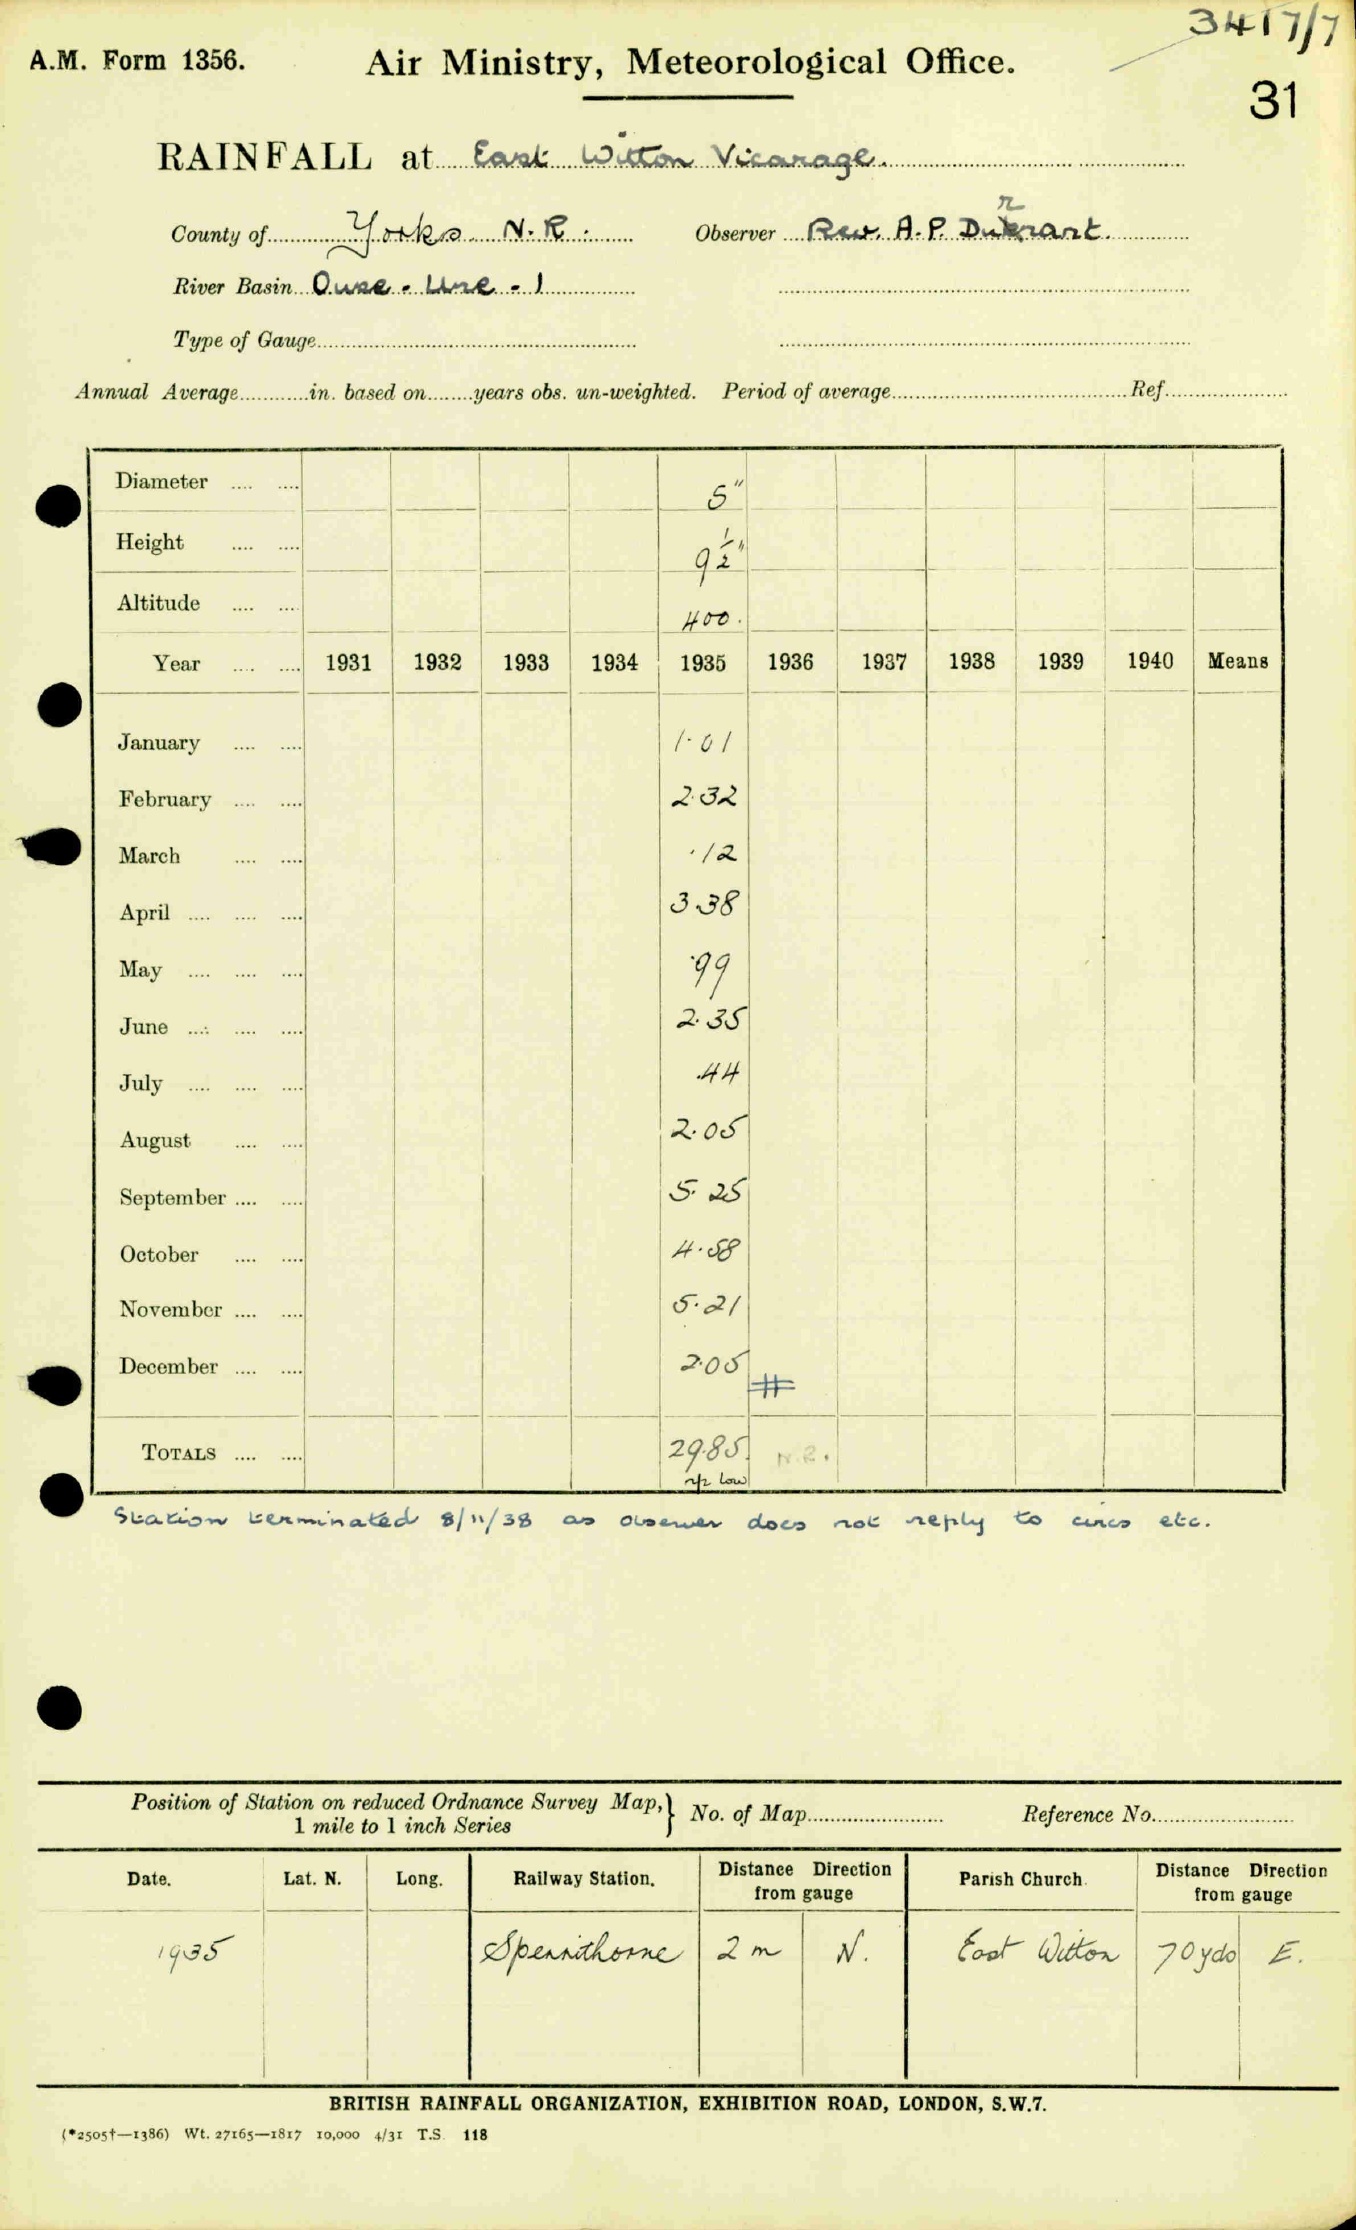 3417/7
A.M. Form 1356. Air Ministry, Meteorological Office.
31
RAINFALL at East Witton Vicarage.
County of Yorks. N.R. Observer Rev. A.P. Durrant.
River Basin Ouse - Ure - 1
Type of Gauge
Annual Average in. based on years obs. un-weighted. Period of average Ref.
Diameter 5"
Height 9½"
Altitude 400.
Year 1931 1932 1933 1934 1935 1936 1937 1938 1939 1940 Means
January 1.01
February 2.32
March .12
April 3.38
May .99
June 2.35
July .44
August 2.05
September 5.25
October 4.58
November 5.21
December 2.05
TOTALS 29.85 N.R.
r/2 low
Station terminated 8/11/38 as observer does not reply to circs etc.
Position of Station on reduced Ordnance Survey Map, } No. of Map Reference No.
1 mile to 1 inch Series
Date. Lat. N. Long. Railway Station. Distance Direction from gauge Parish Church. Distance Direction from gauge
1935 Spennithorne 2 m N. East Witton 70 yds E.
BRITISH RAINFALL ORGANIZATION, EXHIBITION ROAD, LONDON, S.W.7.
(*2505†—1386) Wt. 27165—1817 10,000 4/31 T.S. 118